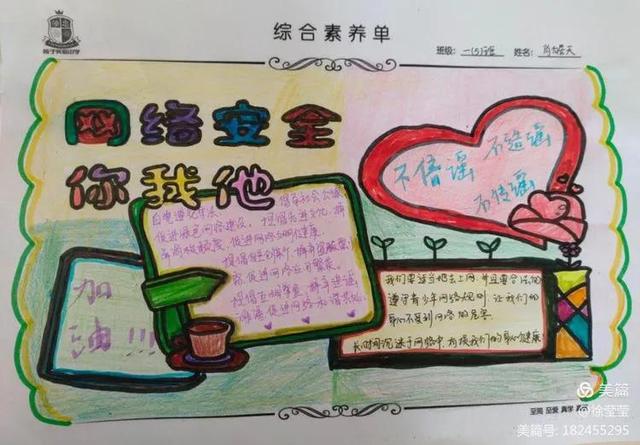 综合素养单
班级: 一(5)班 姓名:
网络安全
你我他
不信谣
不造谣
不传谣
自觉遵纪守法 倡导社会公德
促进绿色网络建设,提倡先进文化,摒
弃消极颓废,促进网络文明健康
提倡自主创新,摒弃盗版
促进网络应用繁荣
提倡互相尊重,摒弃造谣
诽谤 促进网络和谐共处
加油!!!
我们要适当地去上网,并且要合法
遵守青少年网络规则,让我们的
身心不受到网络的危害
长时间沉迷于网络中,有损我们的身心健康
至简 至爱 真学 真
美篇
@徐莹莹
美篇号: 182455295